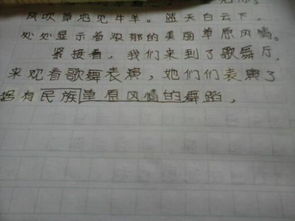 风吹草地见牛羊。蓝天白云下，
处处显示着浓郁的美丽草原风情。
紧接着，我们来到了歌舞厅，
来观看歌舞表演，她们们表演了
拥有民族草原风情的舞蹈，